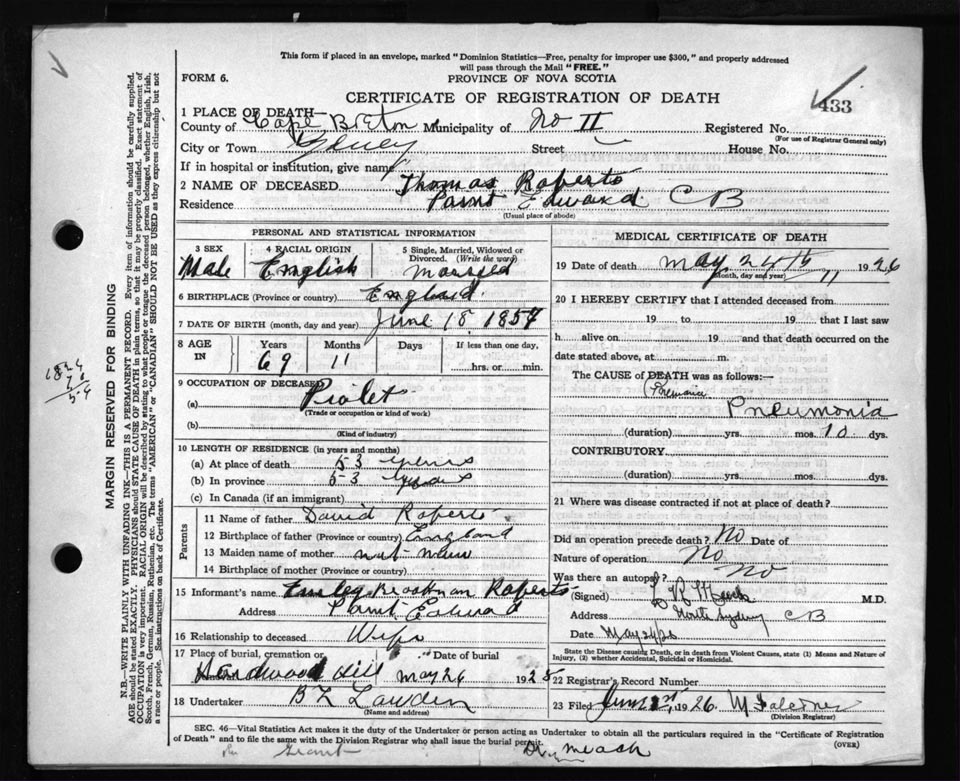 This form if placed in an envelope, marked "Dominion Statistics—Free, penalty for improper use $300," and properly addressed
will pass through the Mail "FREE."
FORM 6.
PROVINCE OF NOVA SCOTIA
CERTIFICATE OF REGISTRATION OF DEATH
433
1 PLACE OF DEATH—
County of Cape Breton Municipality of No II Registered No.
(For use of Registrar General only)
City or Town Sydney Street House No.
If in hospital or institution, give name
2 NAME OF DECEASED Thomas Roberts
Residence Point Edward CB
(Usual place of abode)
PERSONAL AND STATISTICAL INFORMATION
3 SEX Male
4 RACIAL ORIGIN English
5 Single, Married, Widowed or Divorced. (Write the word)
6 BIRTHPLACE (Province or country) England
7 DATE OF BIRTH (month, day and year) June 18, 1857
8 AGE IN Years 69 Months 11 Days If less than one day, hrs. or min.
9 OCCUPATION OF DECEASED
(a) Piolet
(Trade or occupation or kind of work)
(b)
(Kind of industry)
10 LENGTH OF RESIDENCE (in years and months)
(a) At place of death 53 years
(b) In province 53
(c) In Canada (if an immigrant)
Parents
11 Name of father David Roberts
12 Birthplace of father (Province or country) England
13 Maiden name of mother
14 Birthplace of mother (Province or country)
15 Informant's name Brookman Roberts
Address Point Edward
16 Relationship to deceased Wife
17 Place of burial, cremation or Date of burial
Hardwood Hill May 26 192
18 Undertaker
(Name and address)
MEDICAL CERTIFICATE OF DEATH
19 Date of death May 24th 1926
(Month, day and year)
20 I HEREBY CERTIFY that I attended deceased from
19 to 19 that I last saw
h alive on 19 and that death occurred on
date stated above, at m.
The CAUSE OF DEATH was as follows:—
Pneumonia
(duration) yrs. mos. 10 dys.
CONTRIBUTORY
(duration) yrs. mos. dys.
21 Where was disease contracted if not at place of death?
Did an operation precede death? No Date of
Nature of operation No
Was there an autopsy? No
(Signed) M.D.
Address North Sydney CB
Date May 24/26
State the Disease causing Death, or in death from Violent Causes, state (1) Means and Nature of
Injury, (2) whether Accidental, Suicidal or Homicidal.
22 Registrar's Record Number
23 Filed 1926
(Division Registrar)
SEC. 46—Vital Statistics Act makes it the duty of the Undertaker or person acting as Undertaker to obtain all the particulars required in the "Certificate of Registration
of Death" and to file the same with the Division Registrar who shall issue the burial permit.
(OVER)
Grant
MARGIN RESERVED FOR BINDING
N.B.—WRITE PLAINLY WITH UNFADING INK—THIS IS A PERMANENT RECORD. Every item of information should be carefully supplied.
AGE should be stated EXACTLY. PHYSICIANS should STATE CAUSE OF DEATH in plain terms, so that it may be properly classified. Exact statement of
OCCUPATION is very important. RACIAL ORIGIN will be described by stating to what people or tongue the deceased person belonged, whether English, Irish,
Scotch, French, German, Russian, Ruthenian, etc. The terms "AMERICAN" or "CANADIAN" SHOULD NOT BE USED as they express citizenship but not
a race or people. See instructions on back of Certificate.